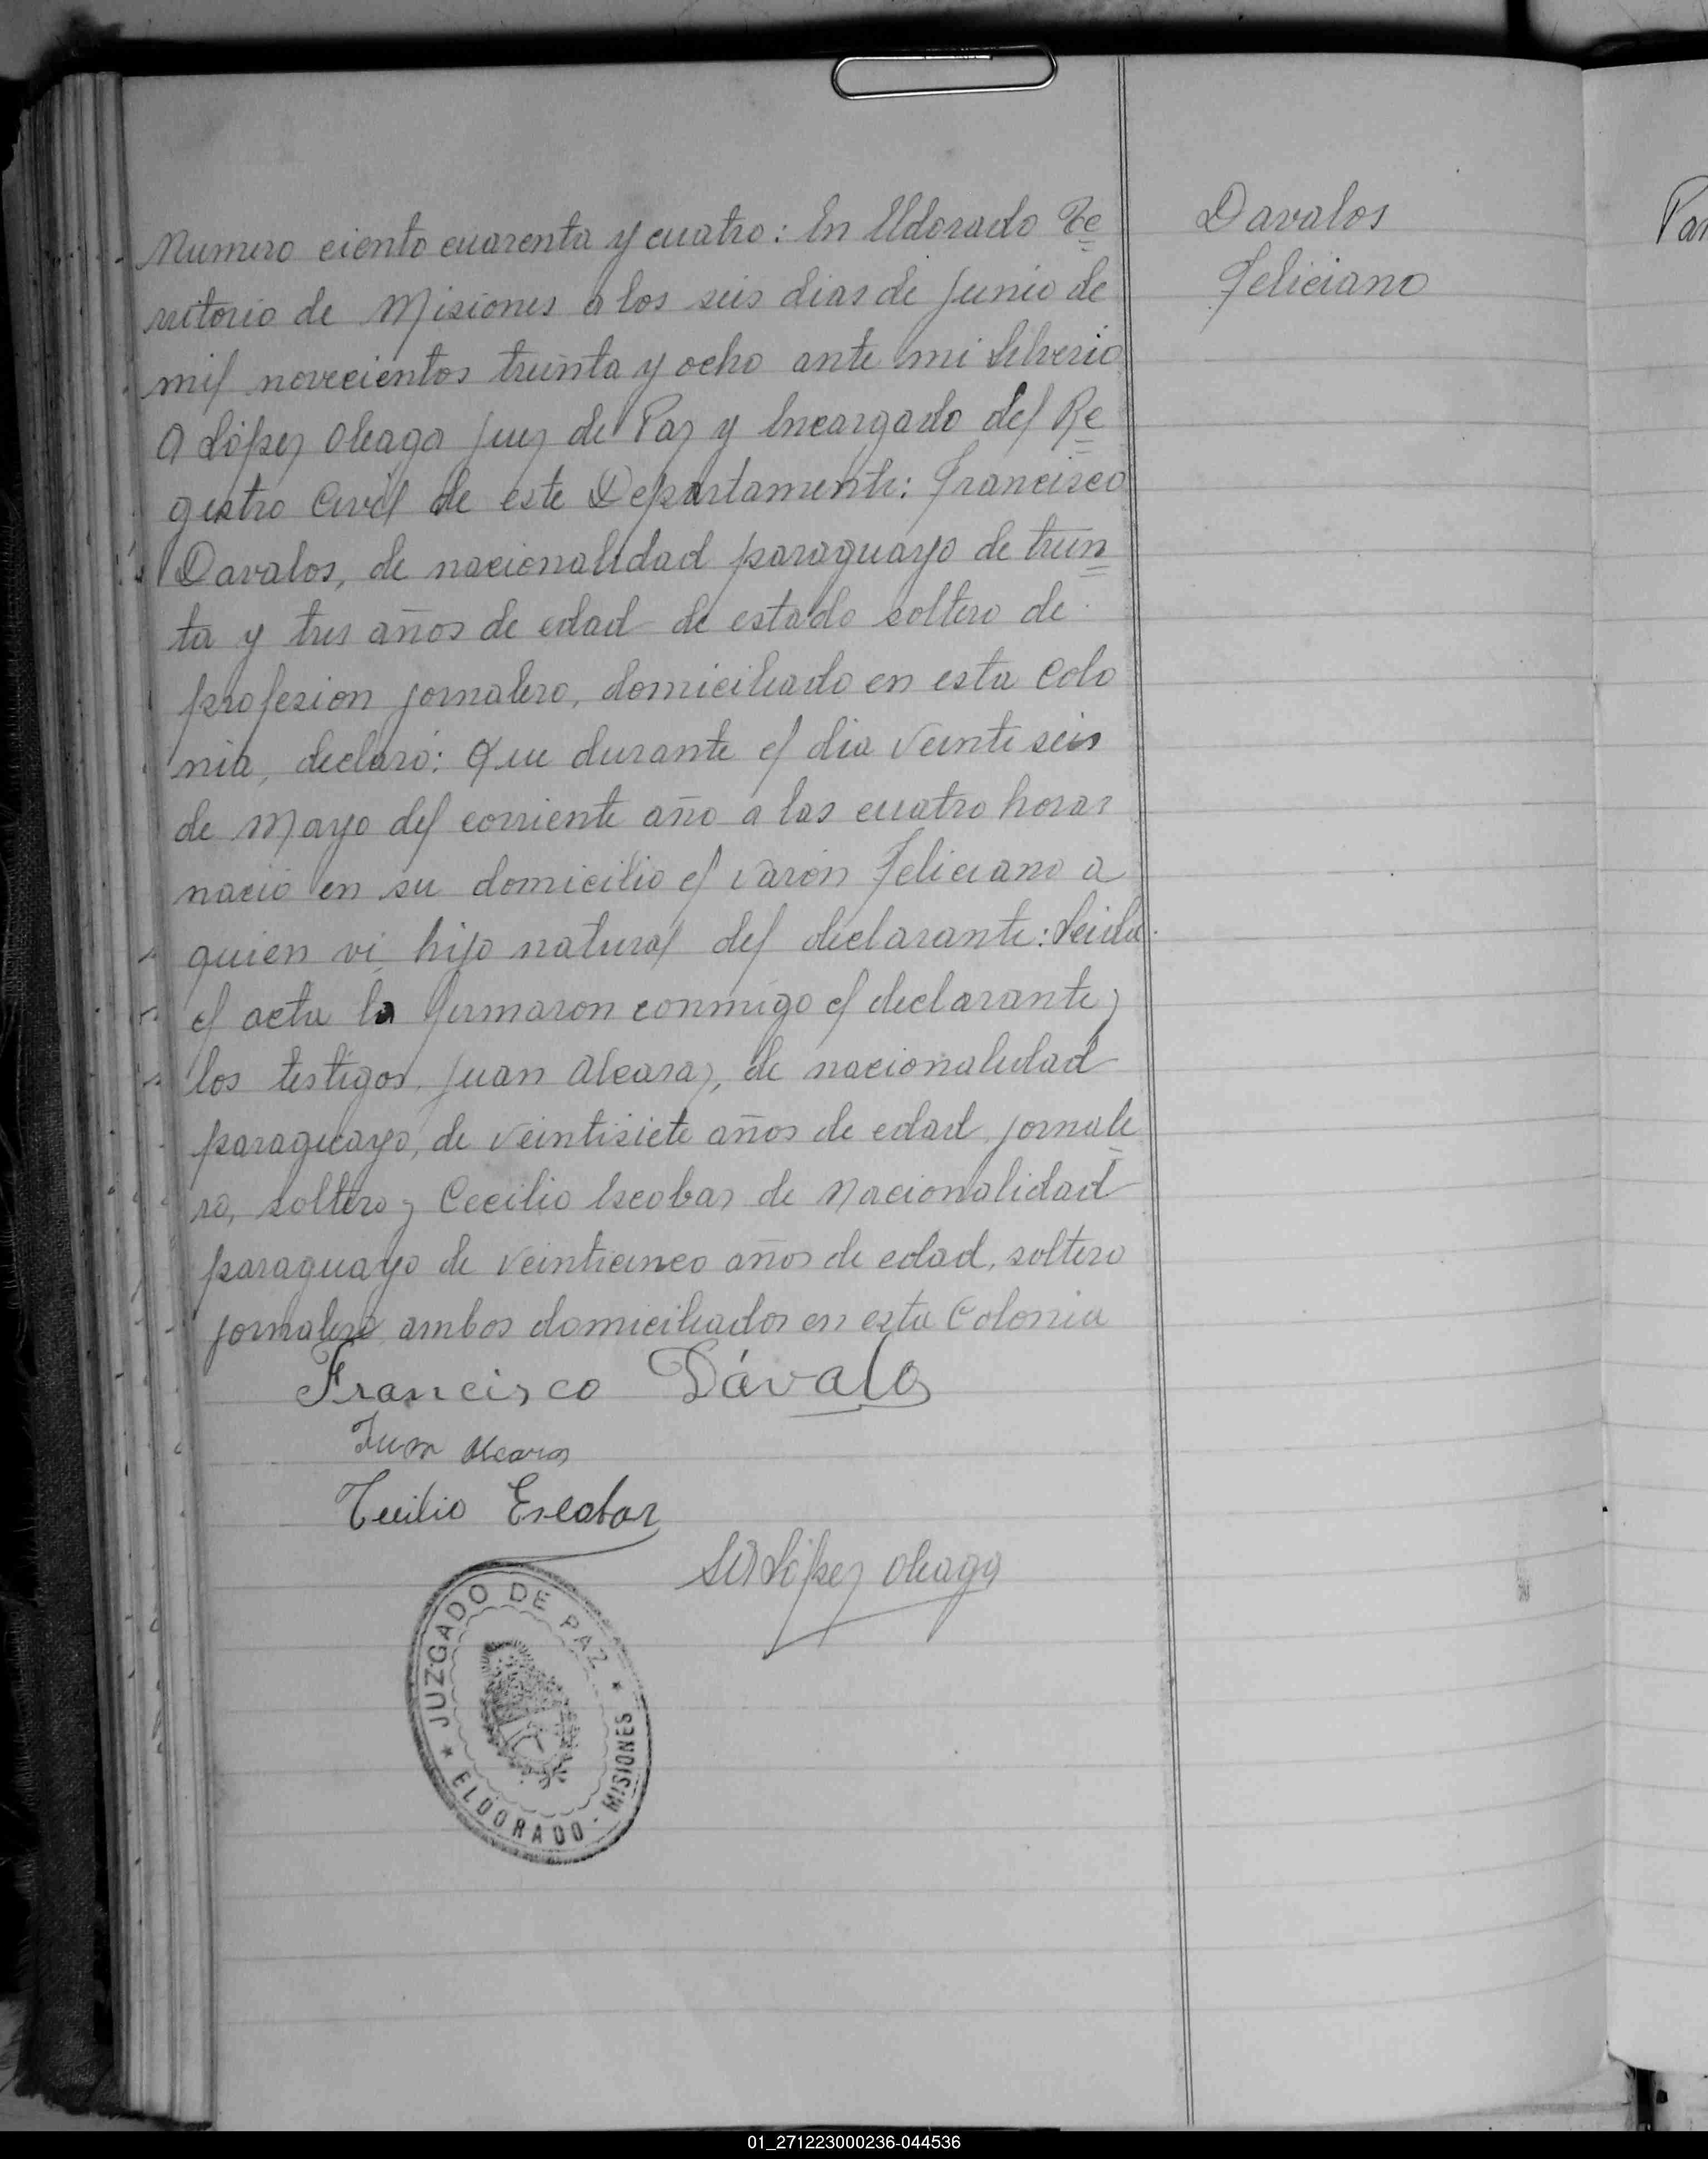 Davalos
Feliciano
Numero ciento cuarenta y cuatro: En Eldorado Te
rritorio de Misiones a los seis dias de Junio de
mil novecientos treinta y ocho ante mi Silverio
O López Oleaga Juez de Paz y Encargado del Re
gistro Civil de este Departamento: Francisco
Davalos, de nacionalidad paraguayo de trein
ta y tres años de edad de estado soltero de
profesion jornalero, domiciliado en esta Colo
nia, declaró: Que durante el dia veinte seis
de Mayo del corriente año a las cuatro horas
nació en su domicilio el varón Feliciano a
quien vi, hijo natural del declarante: Leida
el acta la firmaron conmigo el declarante y
los testigos, Juan Alcaraz, de nacionalidad
paraguayo, de veintisiete años de edad jornale
ro, soltero y Cecilio Escobar de Nacionalidad
paraguayo de veinticinco años de edad, soltero
jornalero ambos domiciliados en esta Colonia
Francisco Dávalos
Juan Alcaraz
Cecilio Escobar
SO López Oleaga
JUZGADO DE PAZ
ELDORADO - MISIONES
01_271223000236-044536